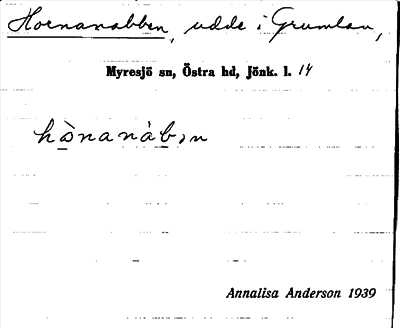 Hornanabben, udde i Grumlan,
Myresjö sn, Östra hd, Jönk. l. 14
hò̠nanàb̠ən
Annalisa Anderson 1939